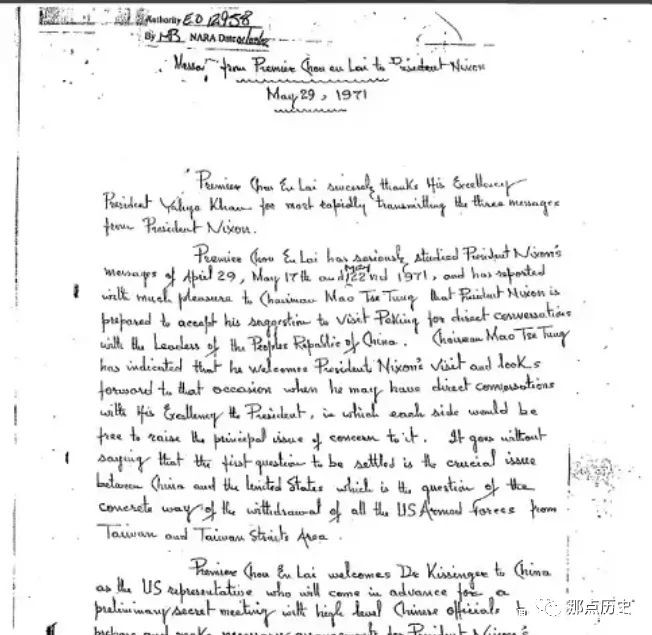 Authority E.O. 12958
By MB NARA Date
Messag from Premier Chou en Lai to President Nixon
May 29, 1971
Premier Chou En Lai sincerely thanks His Excellency
President Yahya Khan for most rapidly transmitting the three messages
from President Nixon.
Premier Chou En Lai has seriously studied President Nixon's
messages of April 29, May 17th and May 22nd 1971, and has reported
with much pleasure to Chairman Mao Tse Tung that President Nixon is
prepared to accept his suggestion to visit Peking for direct conversations
with the Leaders of the Peoples Republic of China. Chairman Mao Tse Tung
has indicated that he welcomes President Nixon's visit and looks
forward to that occasion when he may have direct conversations
with His Excellency the President, in which each side would be
free to raise the principal issue of concern to it. It goes without
saying that the first question to be settled is the crucial issue
between China and the United States which is the question of the
concrete way of the withdrawal of all the US Armed Forces from
Taiwan and Taiwan Straits Area.
Premier Chou En Lai welcomes Dr Kissinger to China
as the US representative who will come in advance for a
preliminary secret meeting with high level Chinese officials to
prepare and make necessary arrangements for President Nixon's
那点历史